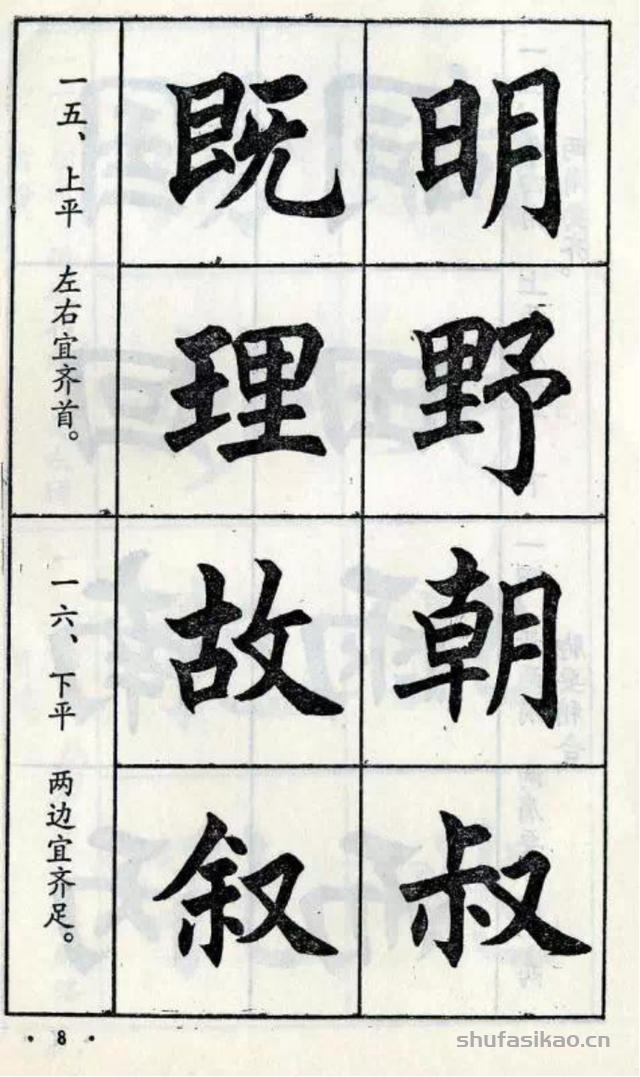 明野
既理
一五、上平 左右宜齐首。
朝叔
故叙
一六、下平 两边宜齐足。
· 8 ·
shufasikao.cn